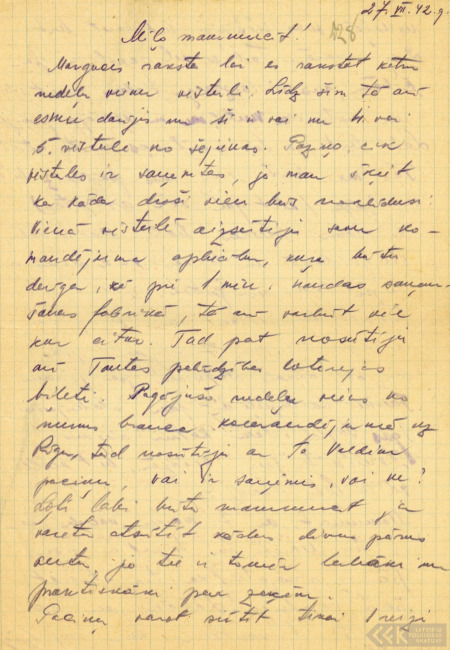 27. VII. 42. g.
128
Mīļo mammucīt!
raksta lai es rakstot katru
nedēļu vienu vēstuli. Līdz šim to arī
esmu darījis nu šī ir vai nu 4. vai
5. vēstule no šejienes. Paziņo, cik
vēstules ir saņemtas, jo man šķiet
ka kāda droši vien būs noklīdusi.
Vienā vēstulē aizsūtīju savu ko-
mandējuma apliecību, kura būtu
derīga, kā pie naudas saņem-
šanas fabrikā, tā arī varbūt vēl
kur citur. Tad pat nosūtīju
arī Tautas palīdzības loterejas
biļeti. Pagājušo nedēļu viens no
mums brauca komandējumā uz
Rīgu, tad nosūtīju ar to Valdim
paciņu, vai ir saņēmis, vai nē?
Ļoti labi būtu mammucīt ja
varētu atsūtīt kādus divus pārus
jo tie ir tomēr labāki un
praktiskāki par zeķēm.
Paciņu varot sūtīt tikai 1 reizi